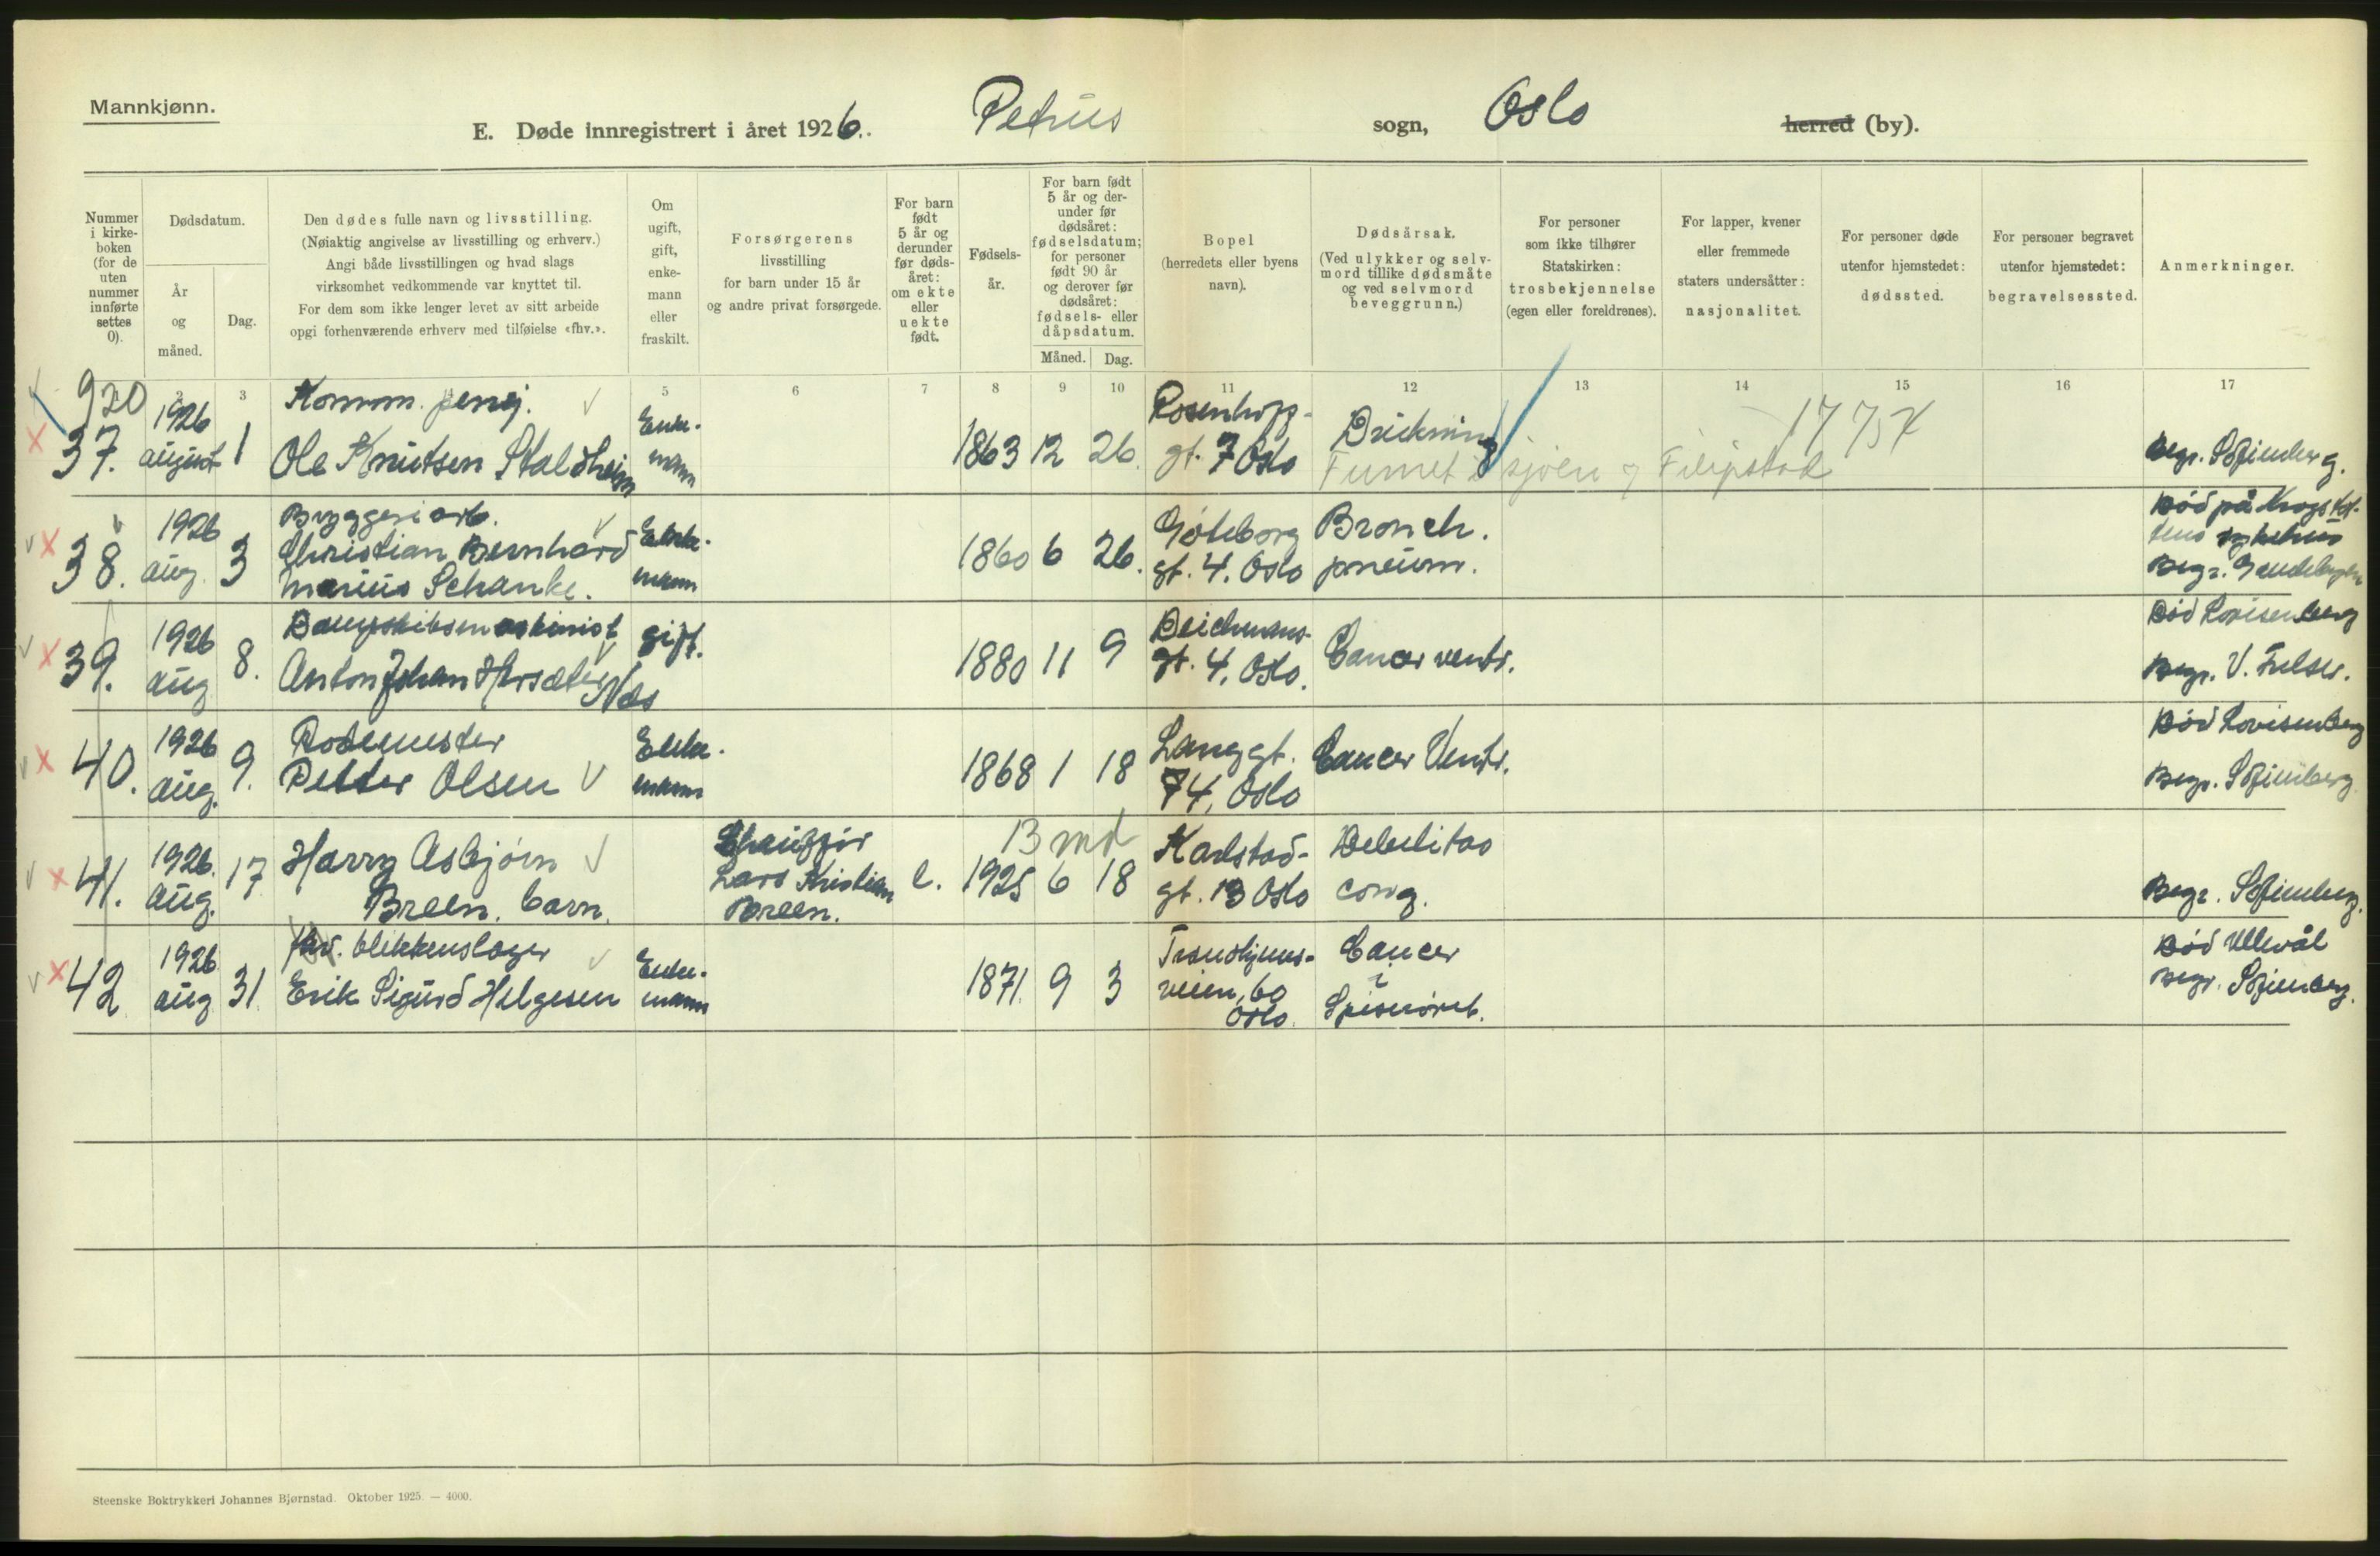 Mannkjønn.
E. Døde innregistrert i året 1926. Petrus sogn, Oslo herred (by).
Nummer i kirke-boken (for de uten nummer innførte settes 0).
Dødsdatum.
År og måned.
Dag.
Den dødes fulle navn og livsstilling.
(Nøiaktig angivelse av livsstilling og erhverv.)
Angi både livsstillingen og hvad slags
virksomhet vedkommende var knyttet til.
For dem som ikke lenger levet av sitt arbeide
opgi forhenværende erhverv med tilføielse «fhv.».
Om ugift, gift, enke-mann eller fraskilt.
Forsørgerens
livsstilling
for barn under 15 år
og andre privat forsørgede.
For barn født 5 år og derunder før døds-året: om ekte eller uekte født.
Fødsels-år.
For barn født 5 år og der-under før dødsåret: fødselsdatum; for personer født 90 år og derover før dødsåret: fødsels- eller dåpsdatum.
Måned. Dag.
Bopel
(herredets eller byens
navn).
Dødsårsak.
(Ved ulykker og selv-
mord tillike dødsmåte
og ved selvmord
beveggrunn.)
For personer
som ikke tilhører
Statskirken:
trosbekjennelse
(egen eller foreldrenes).
For lapper, kvener
eller fremmede
staters undersåtter:
nasjonalitet.
For personer døde
utenfor hjemstedet:
dødssted.
For personer begravet
utenfor hjemstedet:
begravelsessted.
Anmerkninger.
2 3 5 6 7 8 9 10 11 12 13 14 15 16 17
920
37. 1926 august 1
Komm. pensj.
Ole Knutsen Staldheim
Enke-mann
1863 12 26.
Rosenhoff-
gt. 7 Oslo
Drukning
Funnet i sjøen v Filipstad
Begr. Sofienberg.
38. 1926 aug. 3
Bryggeriarb.
Christian Bernhard
Marius Schanke.
Enke-mann
1860 6 26.
Göteborg
gt. 4. Oslo
Bronch.
pneum.
Død på Krogstøt-
tens sykehus
Begr.
39. 1926 aug 8.
Dampskibsmaskinist
Anton Johan Horsæter
Næs
gift.
1880 11 9
Deichmans-
gt. 4, Oslo.
Cancer ventr.
Død Lovisenberg
Begr. V. Frelser.
40. 1926 aug. 9.
Rodemester
Petter Olsen
Enke-mann
1868 1 18
Langgt.
74, Oslo
Cancer Ventr.
Død Lovisenberg
Begr. Sofienberg
41. 1926. aug. 17
Harry Asbjørn
Breen. barn.
Chauffør
Lars Kristian
Breen.
e. 13 md
1925 6 18
Karlstad-
gt. 13 Oslo
Debilitas
cong.
Begr. Sofienberg.
42 1926 aug 31.
fhv. blikkenslager
Erik Sigurd Helgesen
Enke-mann
1871. 9 3
Trondhjems-
veien, 60
Oslo.
Cancer
i
Spiserøret.
Død Ullevål
Begr. Sofienberg.
Steenske Boktrykkeri Johannes Bjørnstad. Oktober 1925. — 4000.